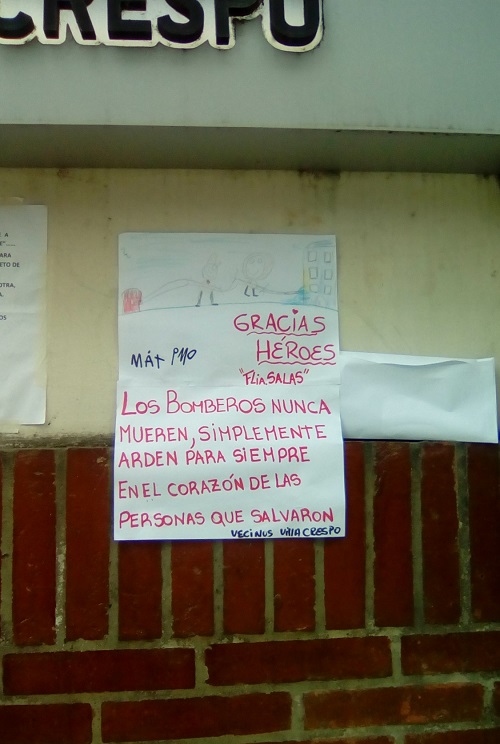 CRESPO
GRACIAS
HÉROES
"FLIA. SALAS"
LOS BOMBEROS NUNCA
MUEREN, SIMPLEMENTE
ARDEN PARA SIEMPRE
EN EL CORAZÓN DE LAS
PERSONAS QUE SALVARON
VECINUS VILLA CRESPO